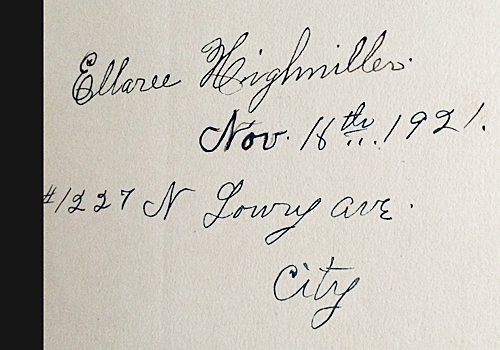 Ellaree Highmiller.
Nov. 18th 1921.
#1227 N Lowry ave.
City